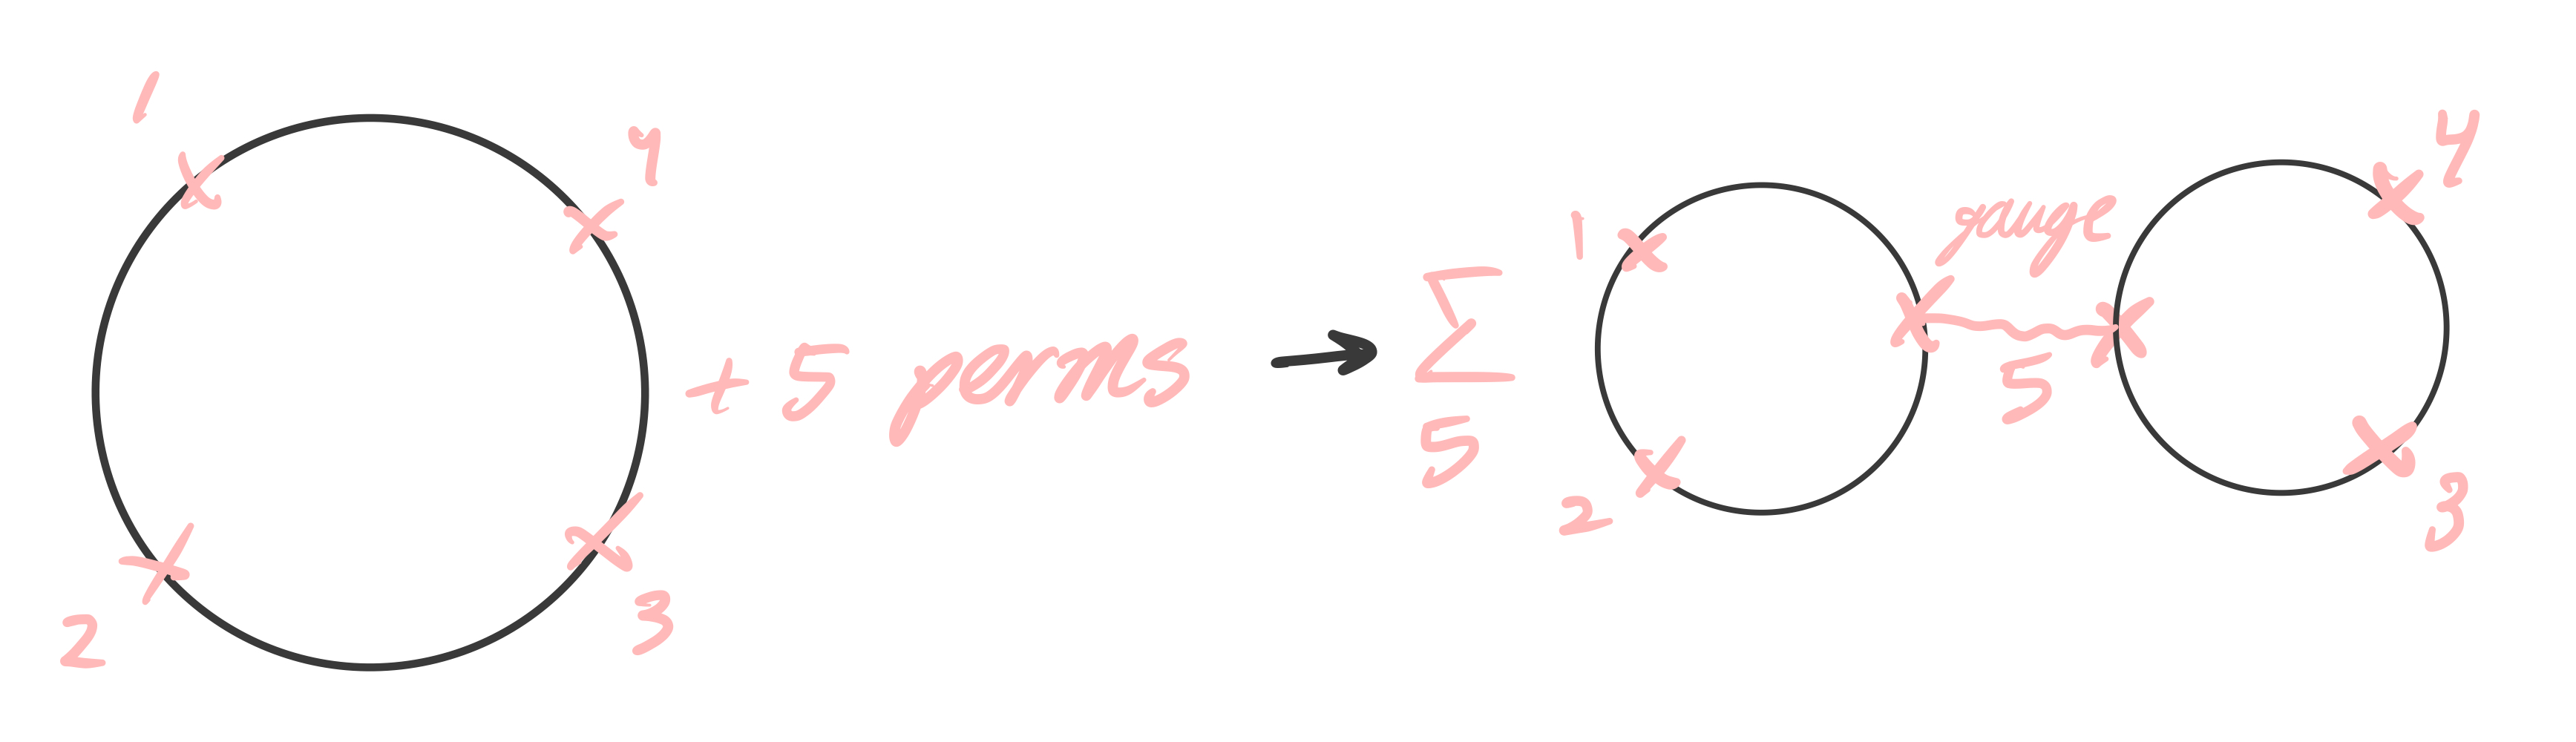 1
4
2
3
+ 5 perms
→
∑
5
1
2
gauge
5
4
3